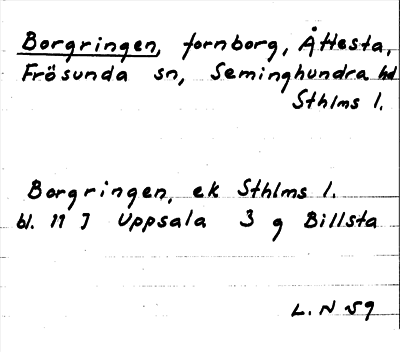 Borgringen, fornborg, Åttesta,
Frösunda sn, Seminghundra hd
Sthlms l.
Borgringen, ek Sthlms l.
bl. 11 I Uppsala 3 g Billsta
L. N 59